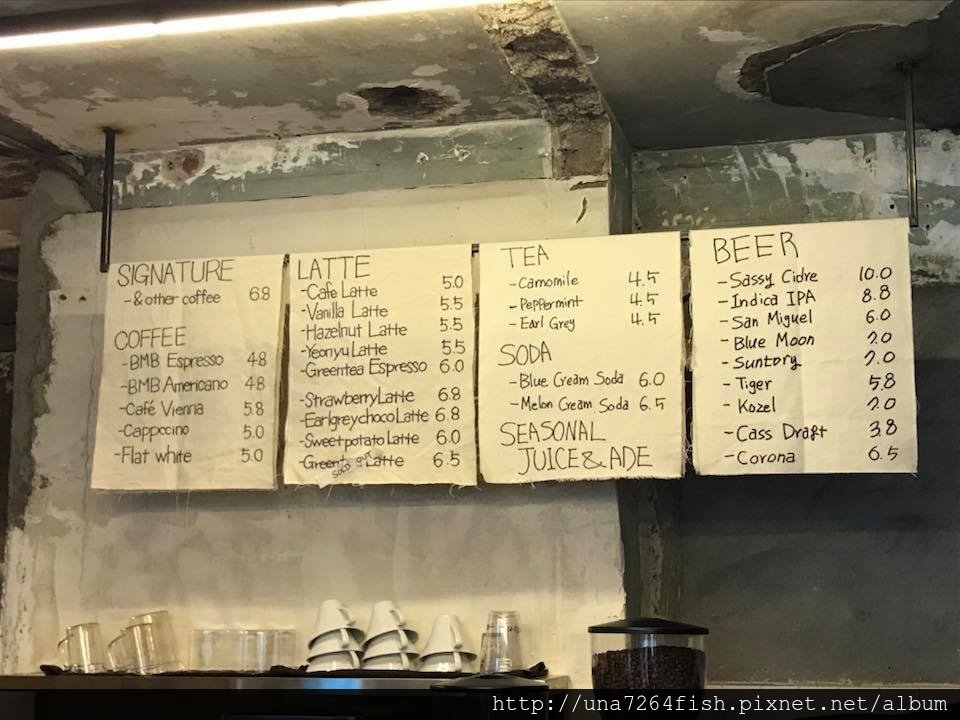 SIGNATURE
-& other coffee 6.8
COFFEE
-BMB Espresso 4.8
-BMB Americano 4.8
-Café Vienna 5.8
-Cappccino 5.0
-Flat white 5.0
LATTE
-Cafe Latte 5.0
-Vanilla Latte 5.5
-Hazelnut Latte 5.5
-Yeonyu Latte 5.5
-Greentea Espresso 6.0
-Strawberry Latte 6.8
-Earlgreychoco Latte 6.8
-Sweetpotato Latte 6.0
-Green Latte 6.5
SOLD OUT
TEA
-Camomile 4.5
-Peppermint 4.5
-Earl Grey 4.5
SODA
-Blue Cream Soda 6.0
-Melon Cream Soda 6.5
SEASONAL
JUICE & ADE
BEER
-Sassy Cidre 10.0
-Indica IPA 8.8
-San Miguel 6.0
-Blue Moon 7.0
-Suntory 7.0
-Tiger 5.8
-Kozel 7.0
-Cass Draft 3.8
-Corona 6.5
http://una7264fish.pixnet.net/album